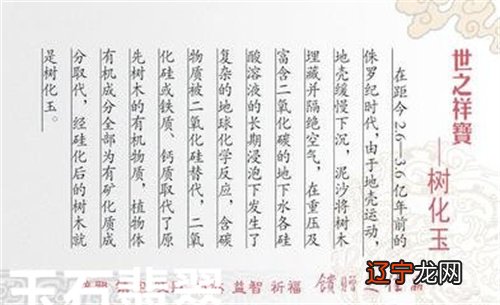 世之祥寶
—树化玉
在距今2.6—3.6亿年前的
侏罗纪时代，由于地壳运动，
地壳缓慢下沉，泥沙将树木
埋藏并隔绝空气，在重压及
富含二氧化碳的地下水各硅
酸溶液的长期浸泡下发生了
复杂的地球化学反应，含碳
物质被二氧化硅替代，二氧
化硅或铁质、钙质取代了原
先树木的有机物质，植物体
有机成分全部为有矿化质成
分取代，经硅化后的树木就
是树化玉。
益智 祈福 馈赠
玉石翡翠
辽宁龙网